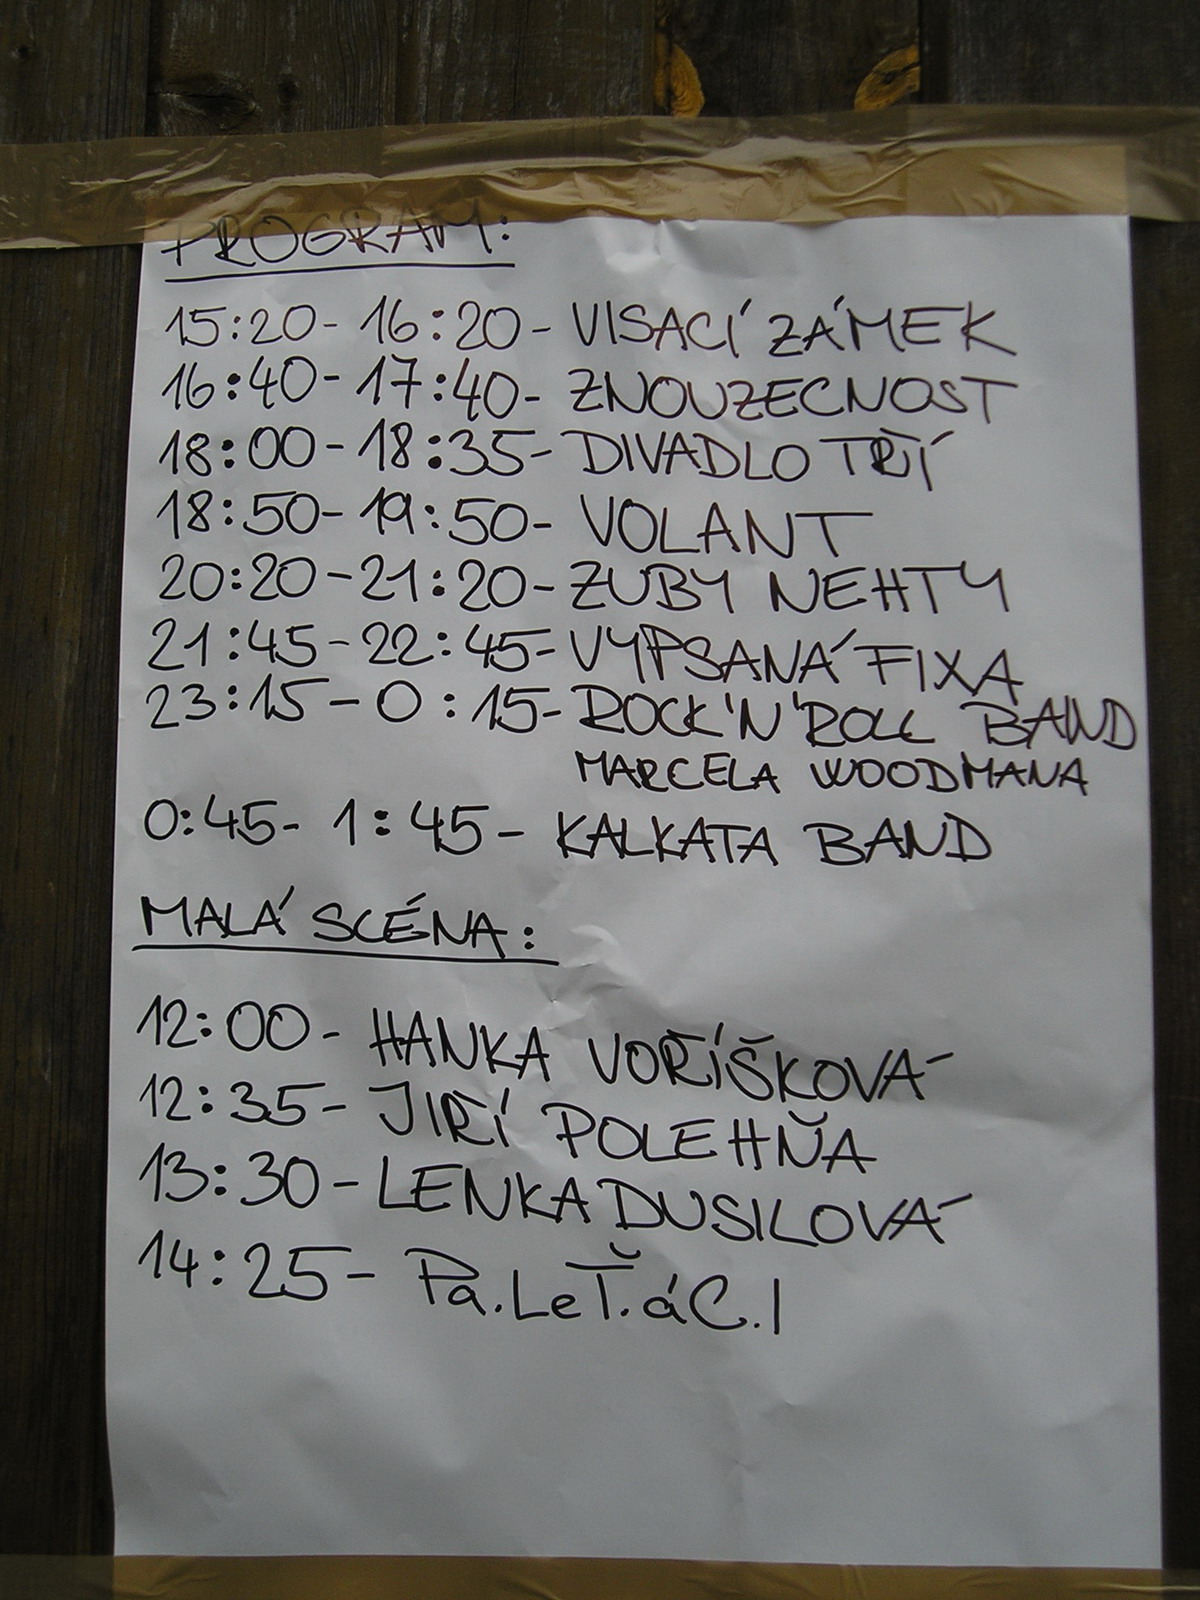 PROGRAM:
15:20- 16:20- VISACÍ ZÁMEK
16:40- 17:40- ZNOUZECNOST
18:00-18:35- DIVADLO TŘÍ
18:50-19:50- VOLANT
20:20-21:20- ZUBY NEHTY
21:45-22:45- VYPSANÁ FIXA
23:15-0:15- ROCK'N'ROLL BAND
MARCELA WOODMANA
0:45- 1:45- KALKATA BAND
MALÁ SCÉNA:
12:00- HANKA VOŘÍŠKOVÁ
12:35- JIŘÍ POLEHŇA
13:30- LENKA DUSILOVÁ
14:25- Pa.LeŤ.áC.I